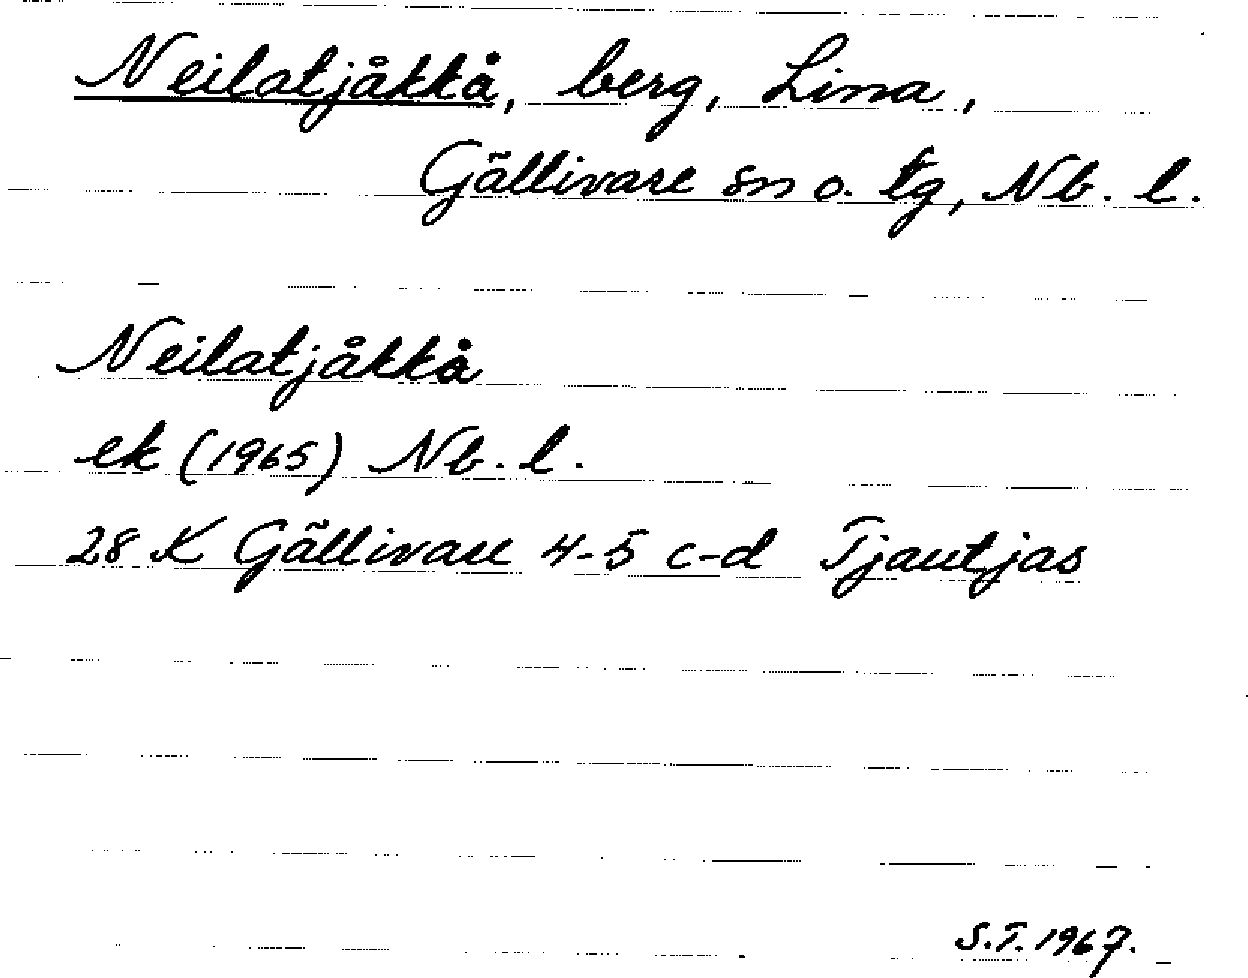 Neilatjåkkå, berg, Lina,
Gällivare sn o. tg, Nb. l.
Neilatjåkkå
ek (1965) Nb. l.
28 K Gällivare 4-5 c-d Tjautjas
S.T. 1967.